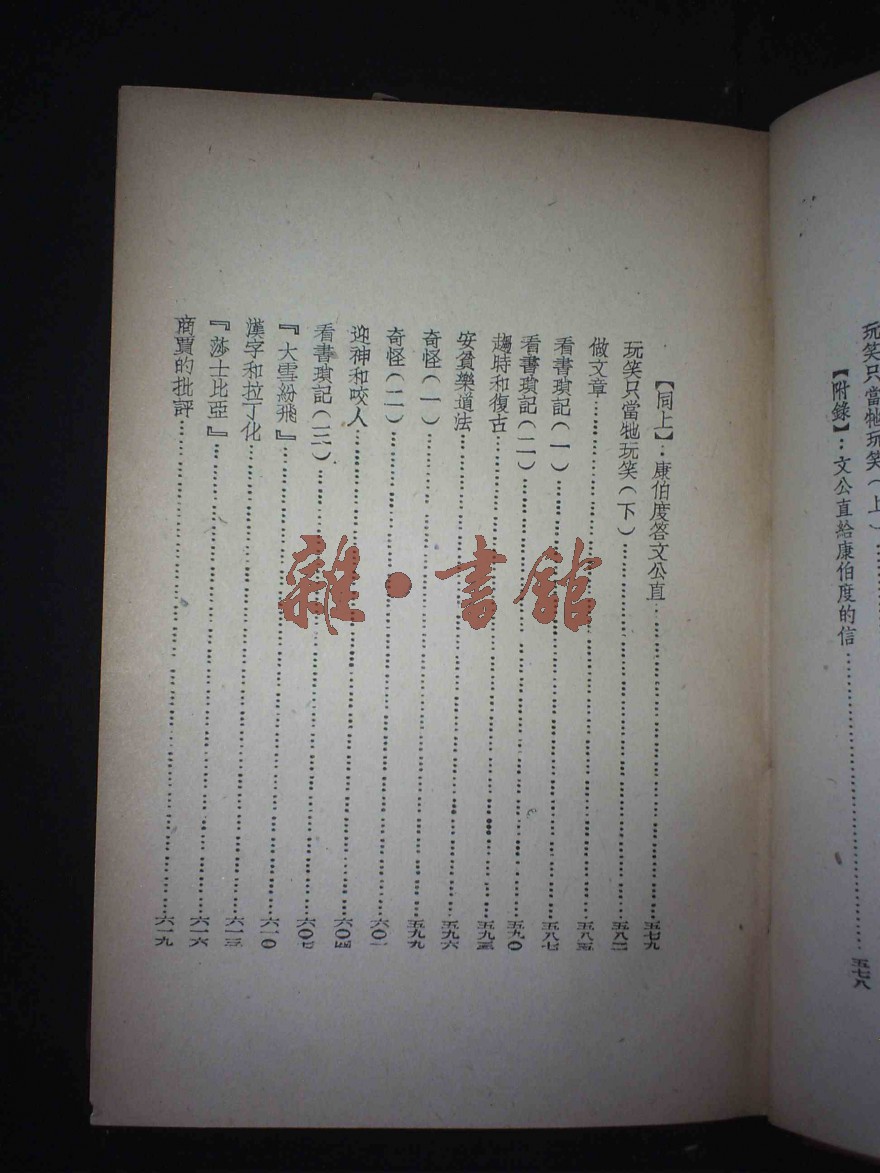 玩笑只當牠玩笑（上）……
【附錄】：文公直給康伯度的信……五七八
【同上】：康伯度答文公直……五七九
玩笑只當牠玩笑（下）……五八二
做文章……五八五
看書瑣記（一）……五八七
看書瑣記（二）……五九〇
趨時和復古……五九三
安貧樂道法……五九六
奇怪（一）……五九九
奇怪（二）……六〇一
迎神和咬人……六〇四
看書瑣記（三）……六〇七
『大雪紛飛』……六一〇
漢字和拉丁化……六一三
『莎士比亞』……六一六
商賈的批評……六一九
雜·書館